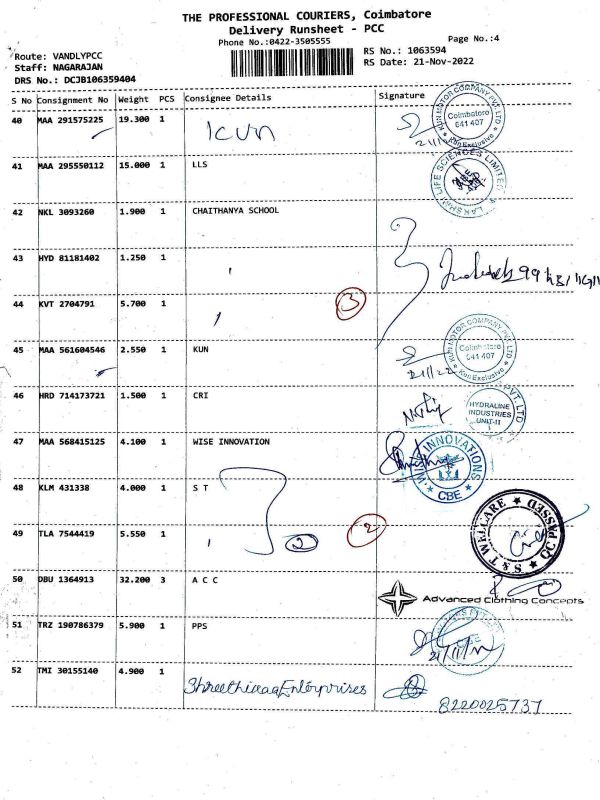 THE PROFESSIONAL COURIERS, Coimbatore
Delivery Runsheet - PCC
Phone No.:0422-3505555
Page No.:4
Route: VANDLYPCC
RS No.: 1063594
Staff: NAGARAJAN
RS Date: 21-Nov-2022
DRS No.: DCJB106359404
S No Consignment No Weight PCS Consignee Details Signature
40 MAA 291575225 19.300 1 KUN
KUN MOTOR COMPANY PVT. LTD
Coimbatore
641 407
Kun Exclusive
41 MAA 295550112 15.000 1 LLS
LAKSHMI LIFE SCIENCES LIMITED
42 NKL 3093260 1.900 1 CHAITHANYA SCHOOL
43 HYD 81181402 1.250 1
44 KVT 2704791 5.700 1
3
45 MAA 561604546 2.550 1 KUN
KUN MOTOR COMPANY PVT. LTD
Coimbatore
641 407
Kun Exclusive
46 HRD 714173721 1.500 1 CRI
PVT. LTD
HYDRALINE
INDUSTRIES
UNIT-II
47 MAA 568415125 4.100 1 WISE INNOVATION
WISE INNOVATIONS
CBE
48 KLM 431338 4.000 1 S T
49 TLA 7544419 5.550 1
2
2
S & T WELCARE
QC PASSED
50 DBU 1364913 32.200 3 A C C
Advanced Clothing Concepts
51 TRZ 190786379 5.900 1 PPS
21/11/22
52 TMI 30155140 4.900 1
Enterprises
8220025737